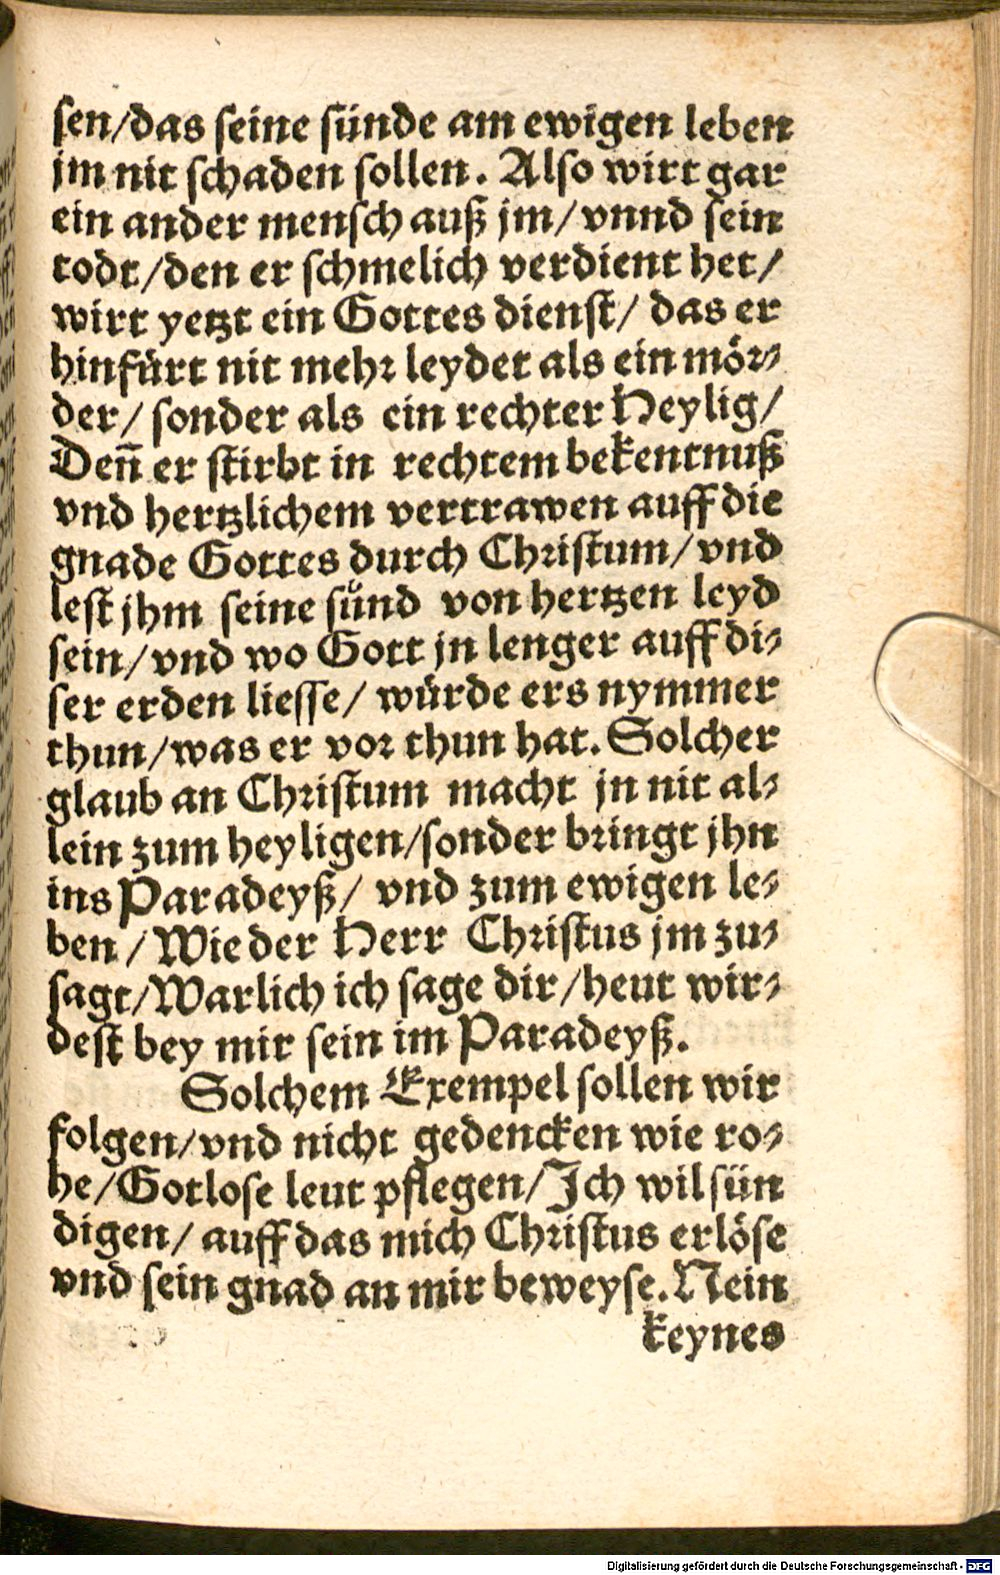 sen/das seine sünde am ewigen leben
jm nit schaden sollen. Also wirt gar
ein ander mensch auß jm/ vnnd sein
todt/den er schmelich verdient het/
wirt yetzt ein Gottes dienst/ das er
hinfürt nit mehr leydet als ein mör-
der/ sonder als ein rechter Heylig/
Deñ er stirbt in rechtem bekentnuß
vnd hertzlichem vertrawen auff die
gnade Gottes durch Christum/ vnd
lest jhm seine sünd von hertzen leyd
sein/ vnd wo Gott jn lenger auff di-
ser erden liesse/ würde ers nymmer
thun/was er vor thun hat. Solcher
glaub an Christum macht jn nit al-
lein zum heyligen/sonder bringt jhn
ins Paradeyß/ vnd zum ewigen le-
ben/Wie der Herr Christus jm zu-
sagt/Warlich ich sage dir/heut wir-
dest bey mir sein im Paradeyß.
Solchem Exempel sollen wir
folgen/vnd nicht gedencken wie ro-
he/Gotlose leut pflegen/Ich wil sün
digen/ auff das mich Christus erlöse
vnd sein gnad an mir beweyse. Nein
keynes
Digitalisierung gefördert durch die Deutsche Forschungsgemeinschaft - DFG